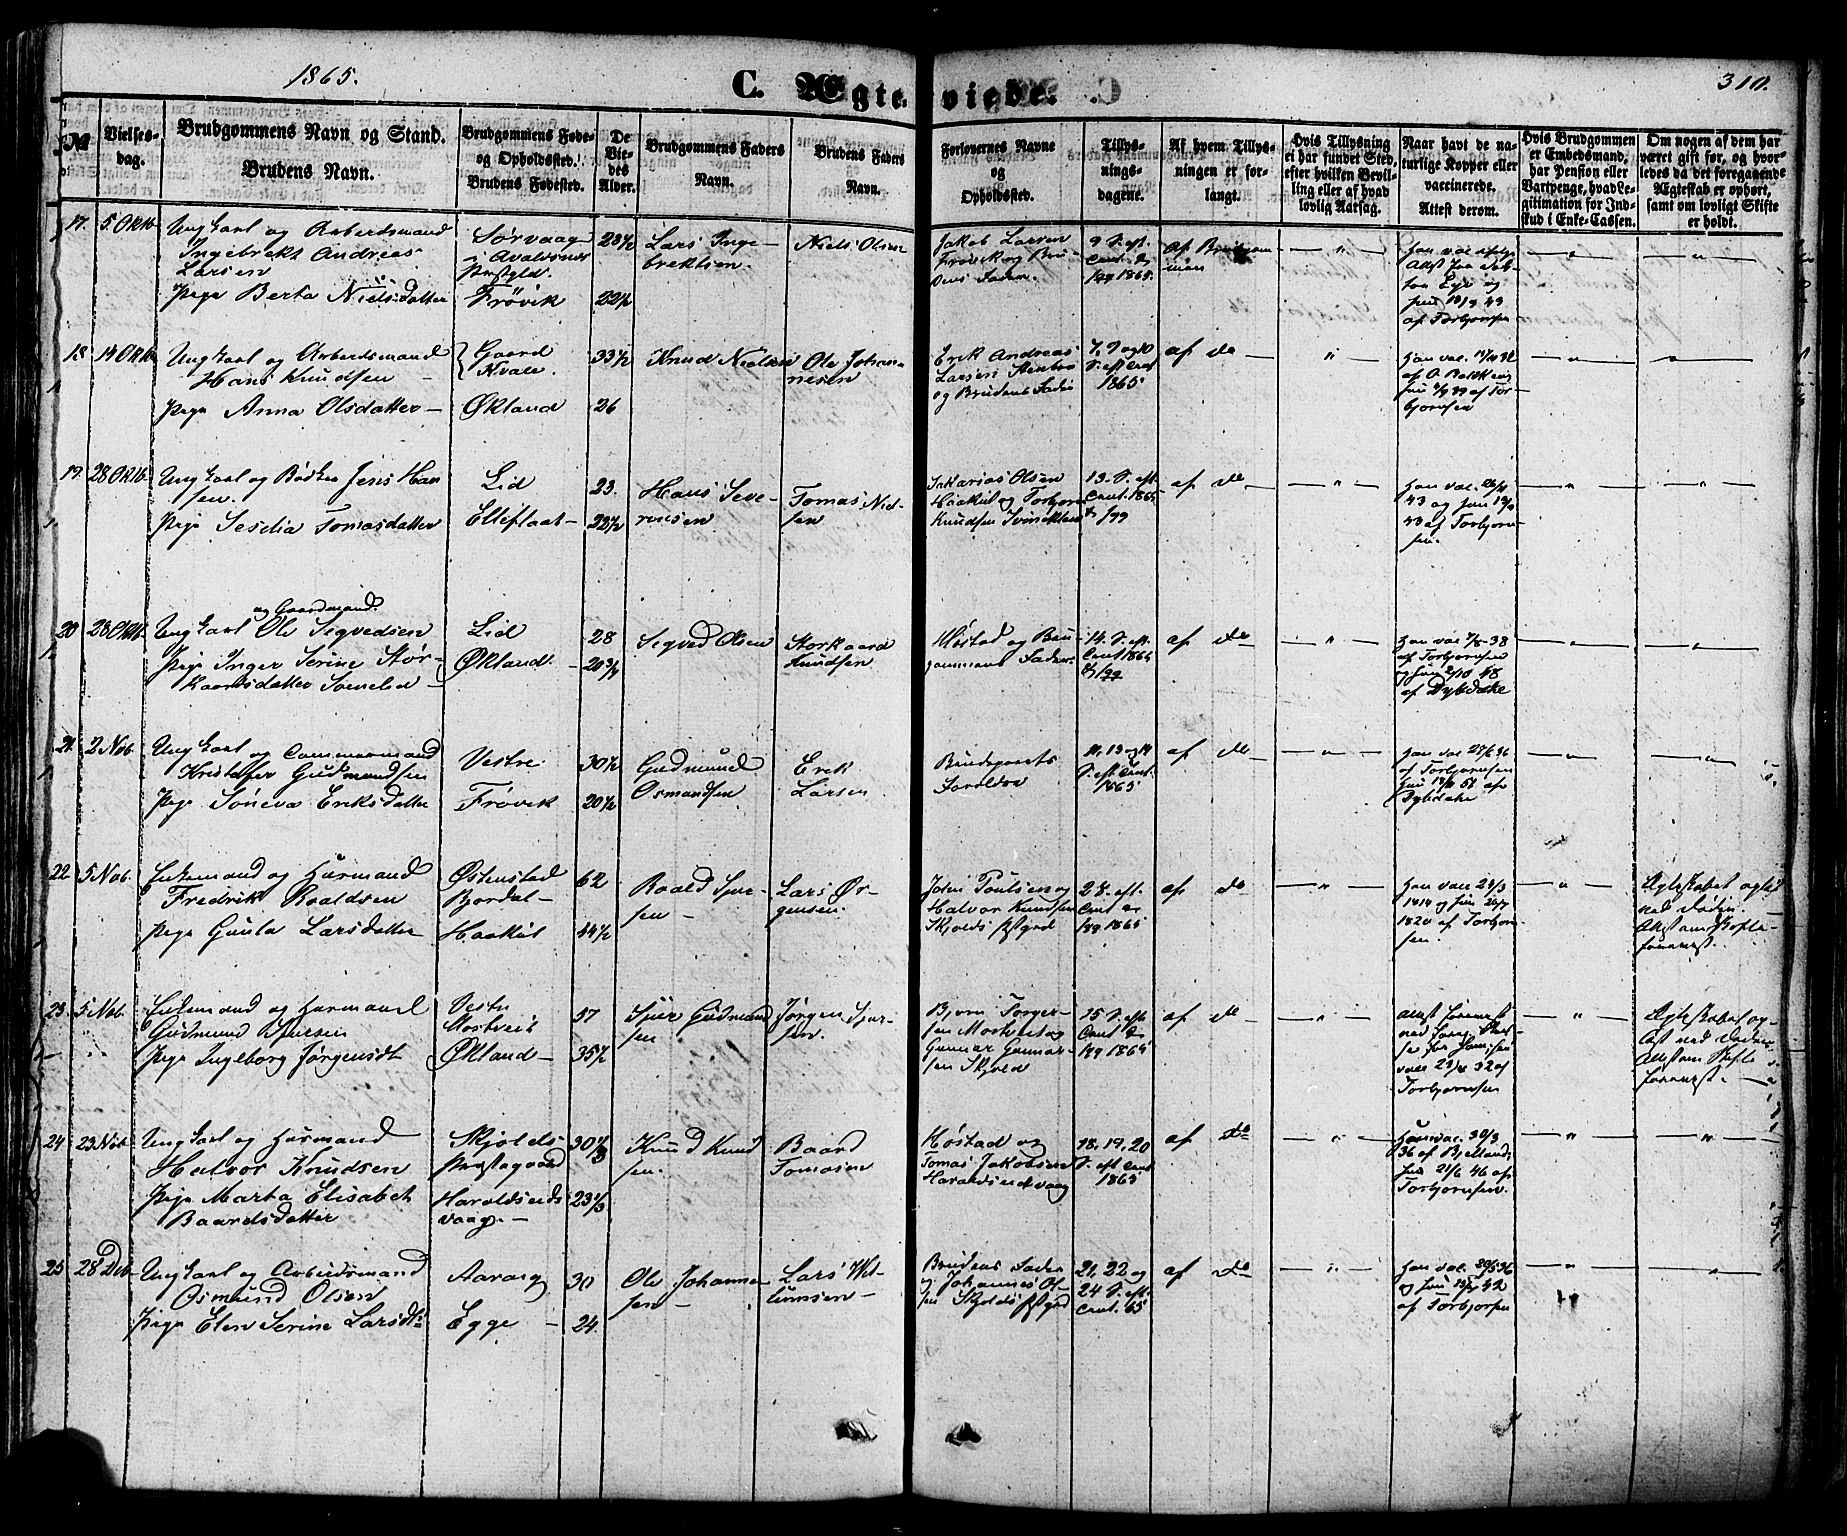 1865.
C. Ægteviede.
310.
№
Vielses-
dag.
Brudgommens Navn og Stand.
Brudens Navn.
Brudgommens Føde-
og Opholdssted.
Brudens Fødested.
De
Vie-
des
Alder.
Brudgommens Faders
Navn.
Brudens Faders
Navn.
Forlovernes Navne
og
Opholdssted.
Tillys-
nings-
dagene.
Af hvem Tillys-
ningen er for-
langt.
Hvis Tillysning
ei har fundet Sted,
efter hvilken Bevil-
ling eller af hvad
lovlig Aarsag.
Naar havt de na-
turlige Kopper eller
vaccinerede.
Attest derom.
Hvis Brudgommen
er Embedsmand,
har Pension eller
Vartpenge, hvad Le-
gitimation for Ind-
skud i Enke-Cassen.
Om nogen af dem har
været gift før, og hvor-
ledes da det foregaaende
Ægteskab er ophørt,
samt om lovligt Skifte
er holdt.
17. 5 Oktb.
Ungkarl og Arbeidsmand
Ingebrekt Andreas
Larsen
Pige Berta Nielsdatter
Sørvaag
i Avaldsnes
Prstgld.
Frövik
28½
22½
Lars Inge-
brektsen.
Niels Olsen
Jakob Larsen
Frövik og Bru-
dens Fader.
9 S. eft.
Cent. &
1865.
af Brudgom-
men
og
af Torbjornsen
18 14 Oktb.
Ungkarl og Arbeidsmand
Hans Knudsen
Pige Anna Olsdatter
Gaard
Kvale.
Økland
33½
26
Knud Nielsen
Ole Johan-
nesen
Erik Andreas
Larsen
og Brudens Fader
7, 9 og 10
S. eft Cent
1865
af do
Han vac.
af Tor-
bjornsen
19. 28 Oktb.
Ungkarl og Bödker Jens Han-
sen.
Pige Seselia Tomasdatter
Lid
Ellefsaat
23.
22½
Hans Seve-
rinsen
Tomas Niel-
sen
Sakarias Olsen
Haakul og Torbjorn
Knudsen
13. S. eft.
Cent. 1865
af do
Han vac.
43 og Hun
43 af Torbjorn-
sen.
20 28 Oktb.
og Gaardmand.
Ungkarl Ole Segvedsen
Pige Inger Serine Stor-
kaardsdatter
Lid
Økland
28
20¾
Segved Olsen
Storkaard
Knudsen
Høstad og Bru-
gommens Fader
14. S. eft.
Cent 1865
af do
Han vac 7/8 38
af Torbjornsen
og Hun 2/10 48
af Dybdahe
21. 2 Nob.
Ungkarl og
Kristofer Gudmundsen
Pige Söneva Eriksdatter
Vestre
Frövik
30½
20½
Gudmund
Osmundsen
Erik
Larsen
Brudeparets
Foreldre
11, 13 og 14
S. eft Cent.
1865
af do
Han vac.
af Torbjornsen
af
Dybdahe
22. 5 Nob.
Enkemand og Huusmand
Fredrik Roaldsen
Pige Gunla Larsdatter
Østenstad
Bjordal
Haakul
62
44½
Roald Sjur-
sen
Lars Ør-
gensen.
John Poulsen og
Halvor Knudsen
Skjolds Pstgrd
28. eft.
Cent
1865
af do
Han vac
1819 og Hun
1820 af Torbjorn-
sen.
Ægteskabet oplöst
ved Döden.
Attest om Skifte
forevist.
23. 5 Nob.
Enkemand og Huusmand
Gudmund Sjursen
Pige Ingeborg Jørgensdt
Vestre
Mostveit
Økland
57
35½
Sjur Gudmund-
sen
Jørgen Sjur-
sen.
Bjorn Torger-
sen Mostveit og
Gunnar Gunnar-
sen Skjold
15 S. eft.
Cent &
1865
af do
Attest forevist
32 af
Torbjornsen
Ægteskabet op-
löst ved Döden
Attest om Skifte
forevist.
24 23 Nob.
Ungkarl og Huusmand
Halvor Knudsen
Pige Marta Elisabet
Baardsdatter
Skjolds
Prestegaard
Haraldseids-
vaag.
30⅓
23⅓
Knud Knud-
sen.
Baard
Tomasen
Høstad og
Tomas Jakobsen
Haraldseidsvaag
18, 19, 20
S. eft Cent
1865
af do
Han vac. 30/3
36 af Bjelland,
Hun 21/6 46 af
Torbjornsen.
25 28 Deb.
Ungkarl og Arbeidsmand
Osmund Olsen
Pige Elen Serine Larsdt
Aarvag
Egge
30
24.
Ole Johannes-
sen
Lars Vil-
lumsen
Brudens Fader
og Johannes Ol-
sen Skjolds Pstgrd
21, 22 og
24 S. eft.
Cent. 65
af do
Han vac. 36
og Hun 42
af Torbjornsen